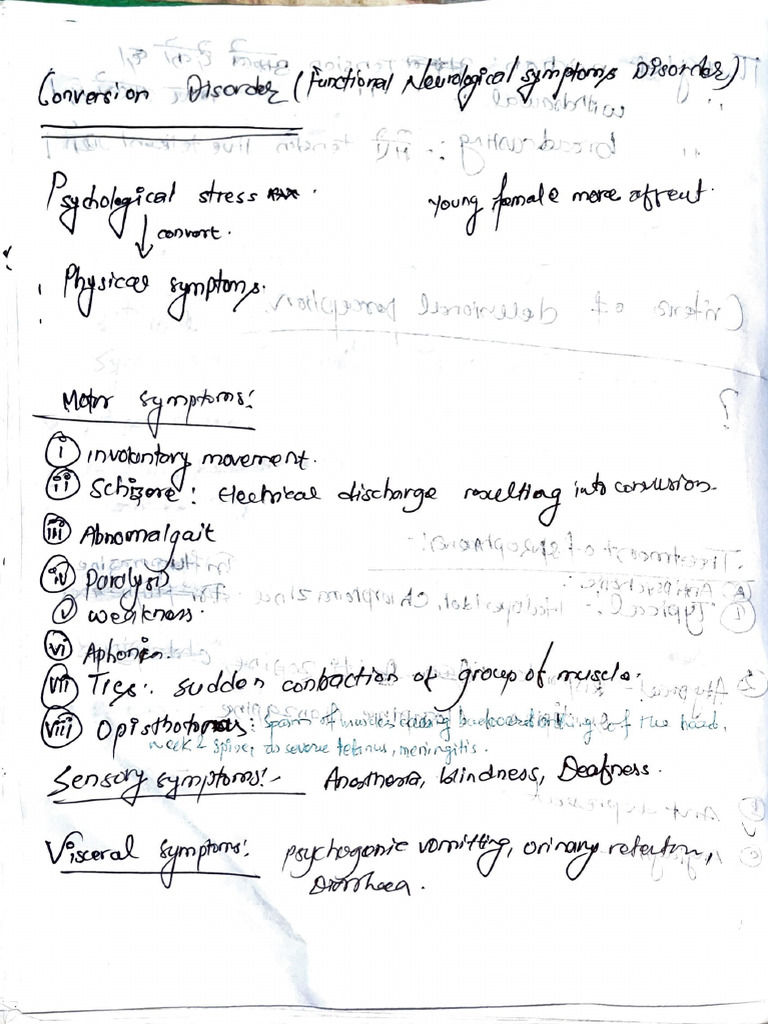 Conversion Disorder (Functional Neurological symptoms Disorder)
Psychological stress
Young female more affect.
convert.
Physical symptoms.
Motor symptoms:
i involuntary movement.
ii Schizere: Electrical discharge resulting into convusion.
iii Abnormal gait
iv Paralysis
v weakness.
vi Aphonia.
vii Tics: sudden contraction of group of muscle.
viii Opisthotonus: spasm of muscles causing backward arching of the head,
neck & spine, as severe tetanus, meningitis.
Sensory symptoms:- Anesthesia, blindness, Deafness.
Visceral symptoms: psychogenic vomitting, urinary retention,
Diarrhoea.